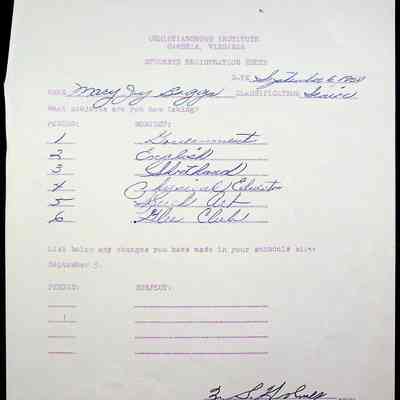 CHRISTIANSBURG INSTITUTE
CAMBRIA, VIRGINIA
STUDENTS REGISTRATION SHEET
DATE September 6, 1950
NAME Mary Joy Baggs CLASSIFICATION Senior
What subjects are you now taking?
PERIOD: SUBJECT:
1 Government
2 English
3 Shorthand
4 Physical Education
5 Art
6 Glee Club
List below any changes you have made in your schedule since
September 5.
PERIOD: SUBJECT:
1
Z. S. Holmes